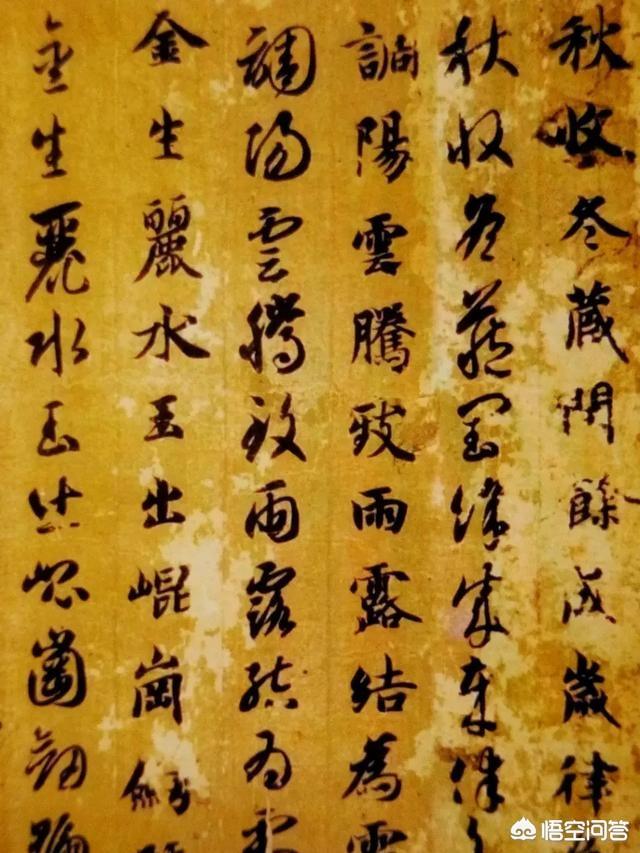 秋收冬藏閏餘成歲律
秋收冬藏閏餘成歲律
調陽雲騰致雨露結為
調陽雲騰致雨露結為
金生麗水玉出崐崗劍
金生麗水玉出崐崗劍號
悟空问答